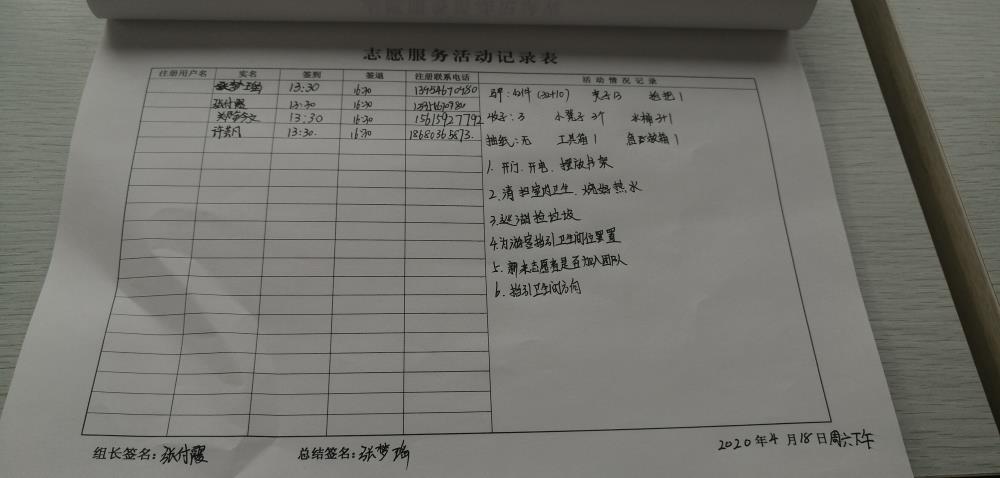 志愿服务活动记录表
注册用户名 实名 签到 签退 注册联系电话 活动情况记录
13:30 16:30 13454670480
张付霞 13:30 16:30
13:30 16:30 15615927792
许 13:30. 16:30 18680365873.
马甲:42件(32+10) 夹子13 拖把1
3 小凳子3个 水桶3+1
抽纸:无 工具箱1 急救药箱1
1. 开门、开电、摆放书架
2. 清扫室内卫生、烧热水
3. 巡湖捡垃圾
4. 为游客指引卫生间位置
5. 新来志愿者是否加入团队
6. 指引卫生间方向
组长签名:张付霞 总结签名:张梦
2020年4月18日周六下午